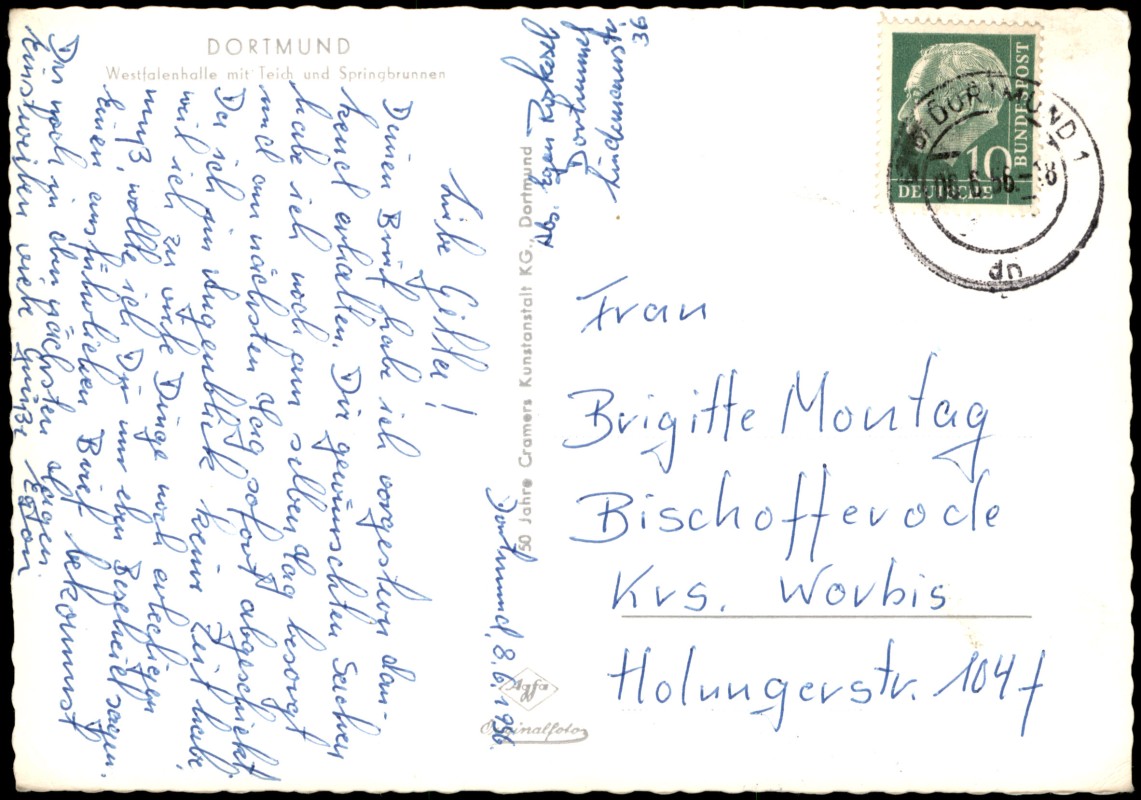 DORTMUND
Westfalenhalle mit Teich und Springbrunnen
Dortmund, 8.6.1956.
Liebe Gitta!
Deinen Brief habe ich vorgestern dan-
kend erhalten. Die gewünschten Sachen
habe ich noch am selben Tag besorgt
und am nächsten Tag sofort abgeschickt
Da ich im Augenblick keine Zeit habe,
weil ich zu viele Dinge noch erledigen
muß, wollte ich Dir nur eben Bescheid sagen.
Einen ausführlichen Brief bekommst
Du noch in den nächsten Tagen.
Einstweilen viele Grüße Egon.
50 Jahre Cramers Kunstanstalt KG., Dortmund
Agfa
Originalfoto
Abs. Egon
Dortmund
Lindemannstr.
36
DEUTSCHE
BUNDESPOST
10
DORTMUND 1
08.6.56.-18
dn
Frau
Brigitte Montag
Bischofferode
Krs. Worbis
Holungerstr. 104f